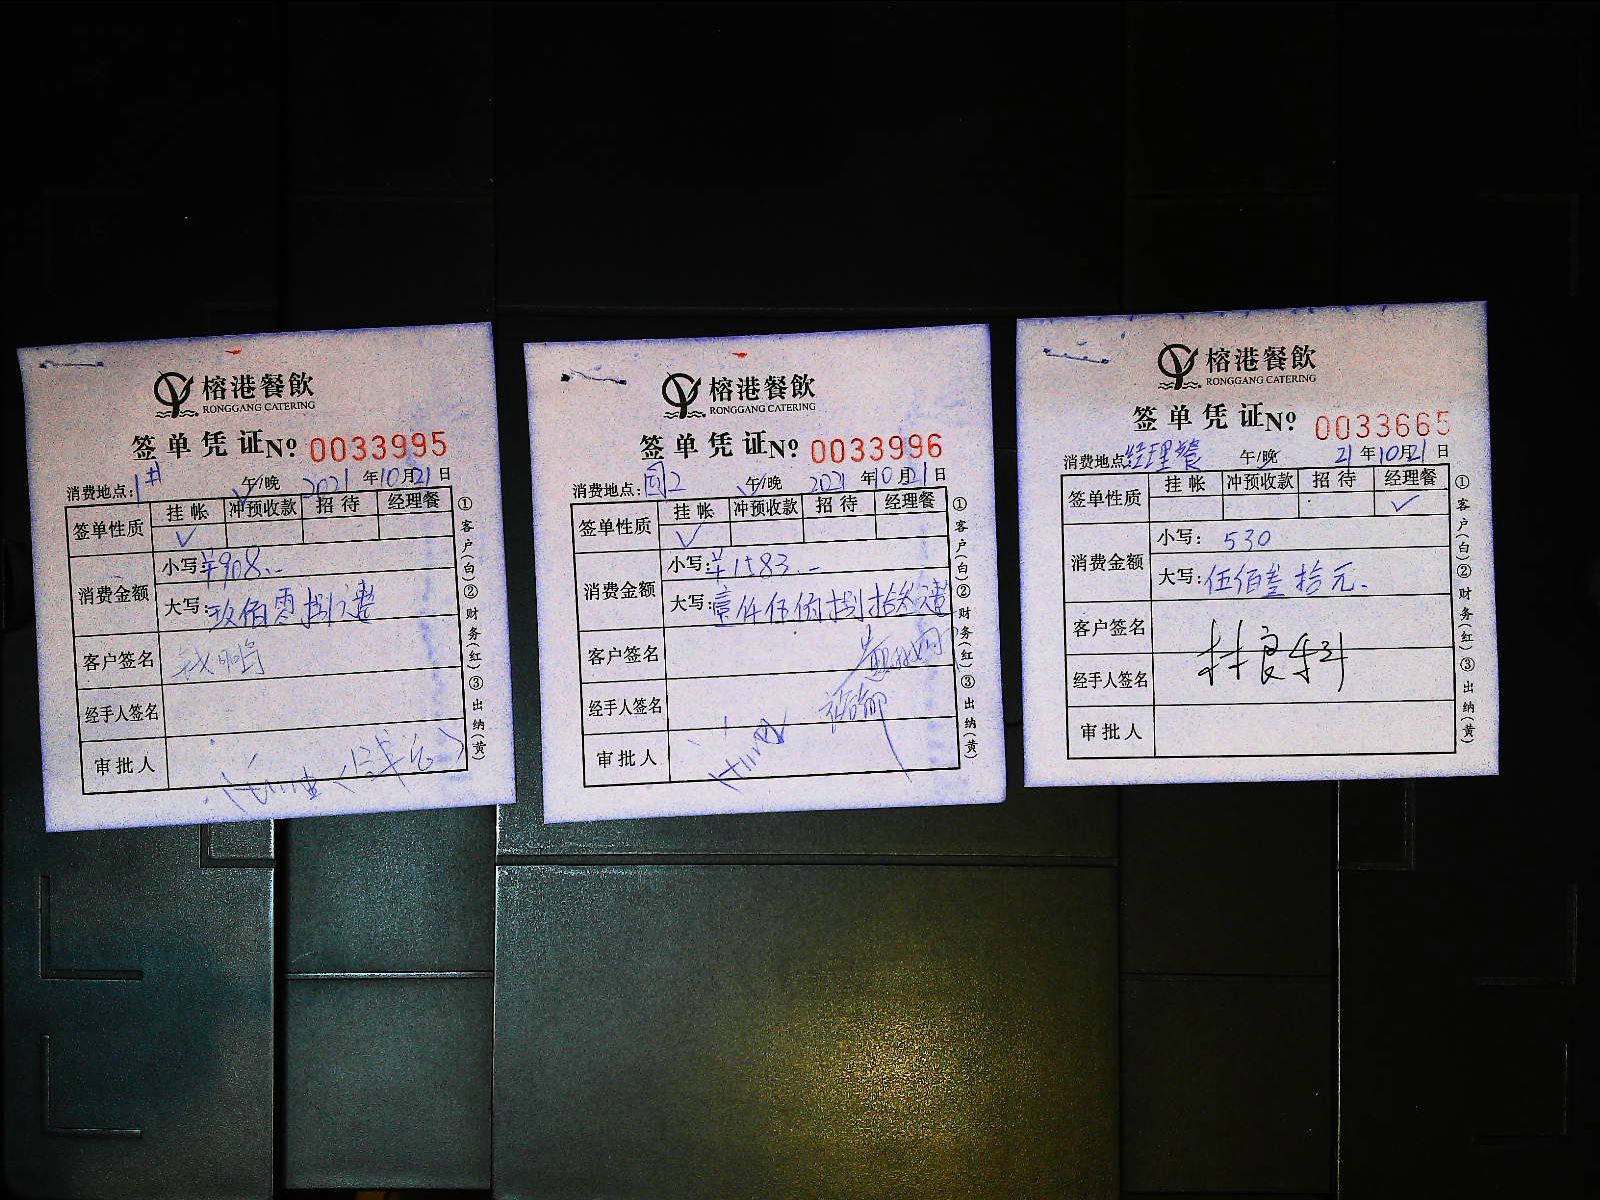 榕港餐飲
RONGGANG CATERING
签单凭证No 0033995
消费地点：1# 午/晚 2021年10月21日
签单性质 挂帐 冲预收款 招待 经理餐
✓
消费金额 小写：¥908.-
大写：玖佰零捌元整
客户签名
经手人签名
审批人
①客户(白)②财务(红)③出纳(黄)
榕港餐飲
RONGGANG CATERING
签单凭证No 0033996
消费地点： 午/晚 2021年10月21日
签单性质 挂帐 冲预收款 招待 经理餐
✓
消费金额 小写：¥1583.-
大写：壹仟伍佰捌拾叁元整
客户签名
经手人签名
审批人
①客户(白)②财务(红)③出纳(黄)
榕港餐飲
RONGGANG CATERING
签单凭证No 0033665
消费地点：经理餐 午/晚 21年10月21日
签单性质 挂帐 冲预收款 招待 经理餐
✓
消费金额 小写：530
大写：伍佰叁拾元.
客户签名
经手人签名
审批人
①客户(白)②财务(红)③出纳(黄)